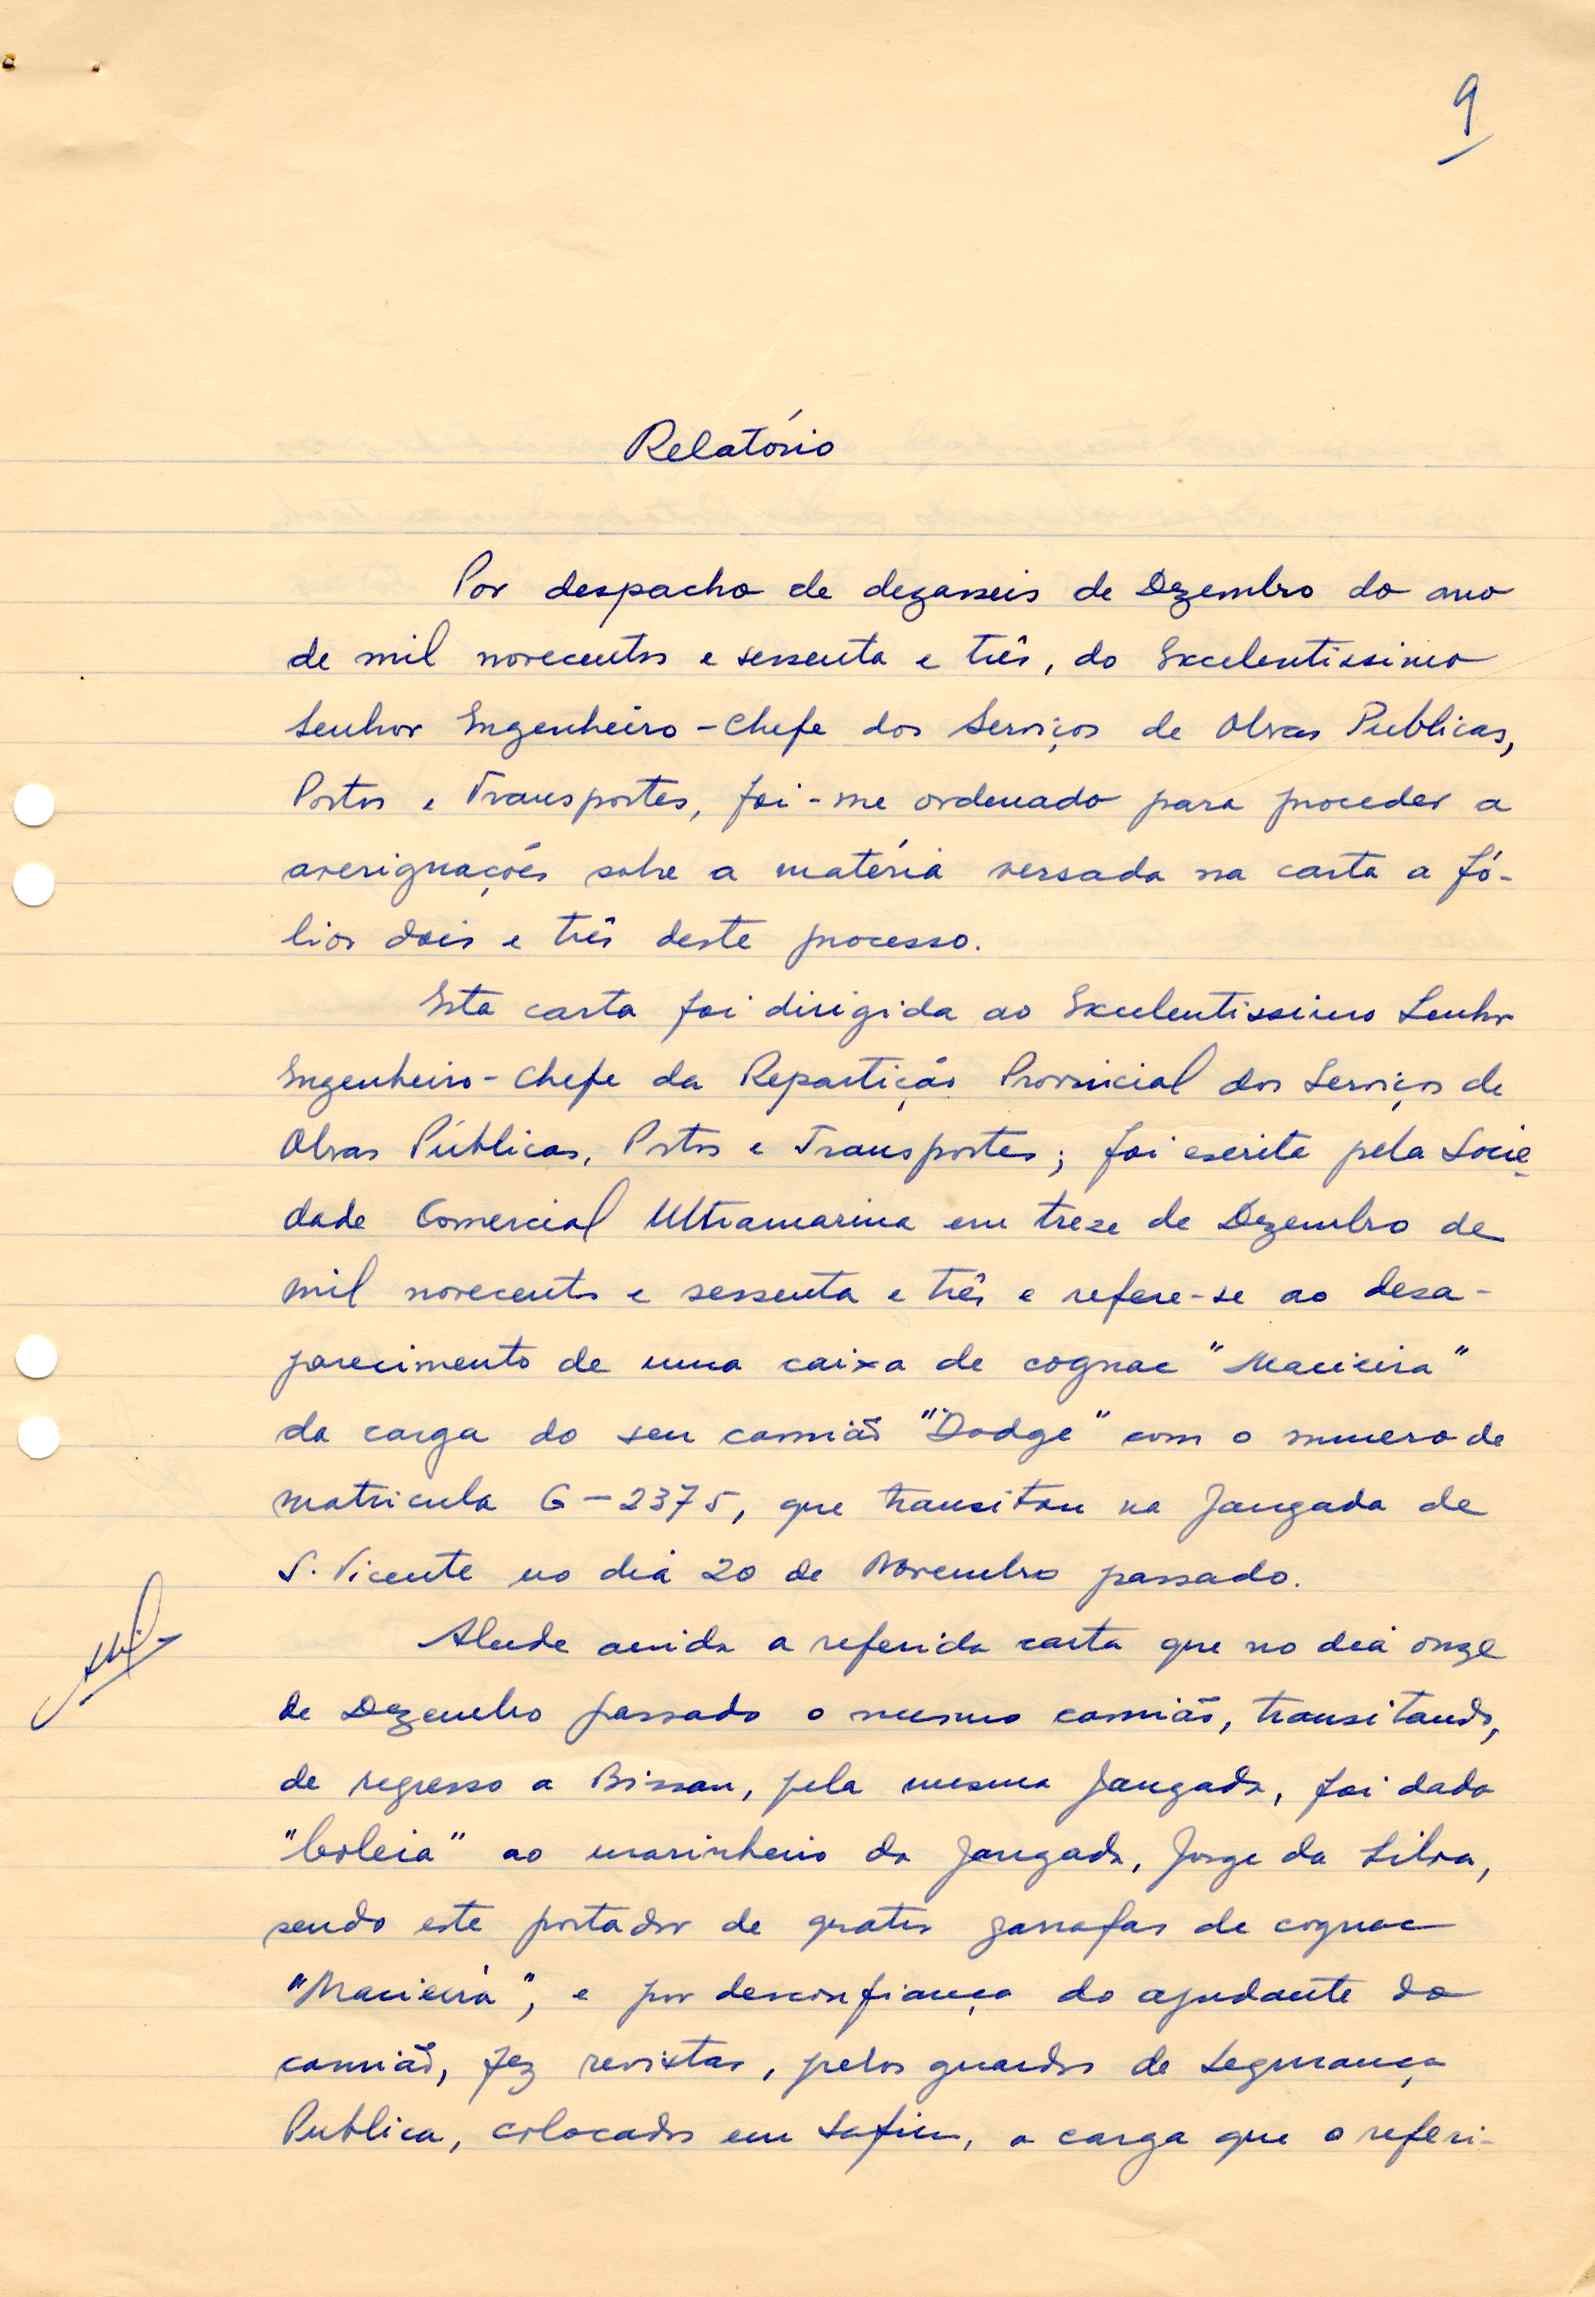 9
Relatório
Por despacho de dezasseis de Dezembro do ano
de mil novecentos e sessenta e três, do Excelentissimo
Senhor Engenheiro-Chefe dos Serviços de Obras Publicas,
Portos e Transportes, foi-me ordenado para proceder a
averiguações sobre a matéria versada na carta a fó-
lios dois e três deste processo.
Esta carta foi dirigida ao Excelentissimo Senhor
Engenheiro-Chefe da Repartição Provincial dos Serviços de
Obras Públicas, Portos e Transportes; foi escrita pela Socie-
dade Comercial Ultramarina em treze de Dezembro de
mil novecentos e sessenta e três e refere-se ao desa-
parecimento de uma caixa de cognac "Macieira"
da carga do seu camião "Dodge" com o numero de
matricula G-2375, que transitou na Jangada de
S. Vicente no dia 20 de Novembro passado.
Alude ainda a referida carta que no dia onze
de Dezembro passado o mesmo camião, transitando,
de regresso a Bissau, pela mesma Jangada, foi dada
"boleia" ao marinheiro da Jangada, Jorge da Silva,
sendo este portador de quatro garrafas de cognac
"Macieira", e por desconfiança do ajudante do
camião, fez revistar, pelos guardas de Segurança
Publica, colocados em Safim, a carga que o referi-